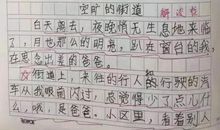 空旷的街道
白天离去，夜晚悄无生息地来临
了，月也那么的明亮，趴在窗台的我，
在思念出差的爸爸。
街道上，来往的行人和行驶的汽
车从我眼前闪过，总觉得少了点儿什
么，哦，是爸爸。小区里，看着别人